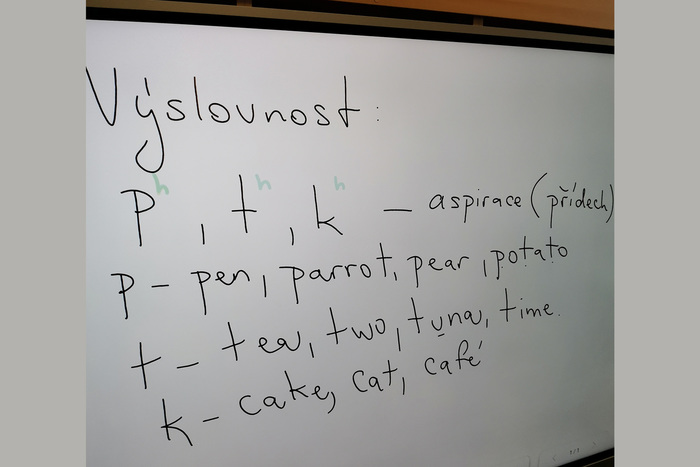 Výslovnost:
pʰ, tʰ, kʰ – aspirace (přídech)
p – pen, parrot, pear, potato
t – tea, two, tuna, time.
k – cake, cat, café